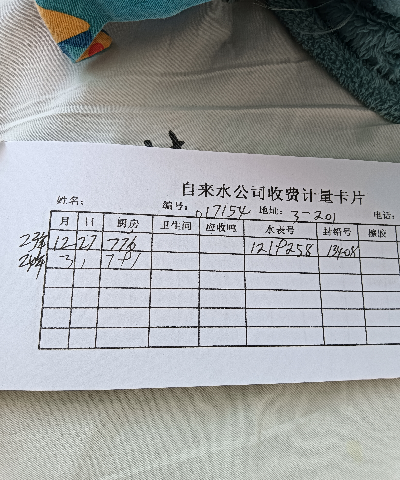 自来水公司收费计量卡片
姓名： 编号：017154 地址：3-201 电话：
月 日 厨房 卫生间 应收吨 水表号 封铅号
23年 12 27 776 1219258 13408
24年 3 1 781